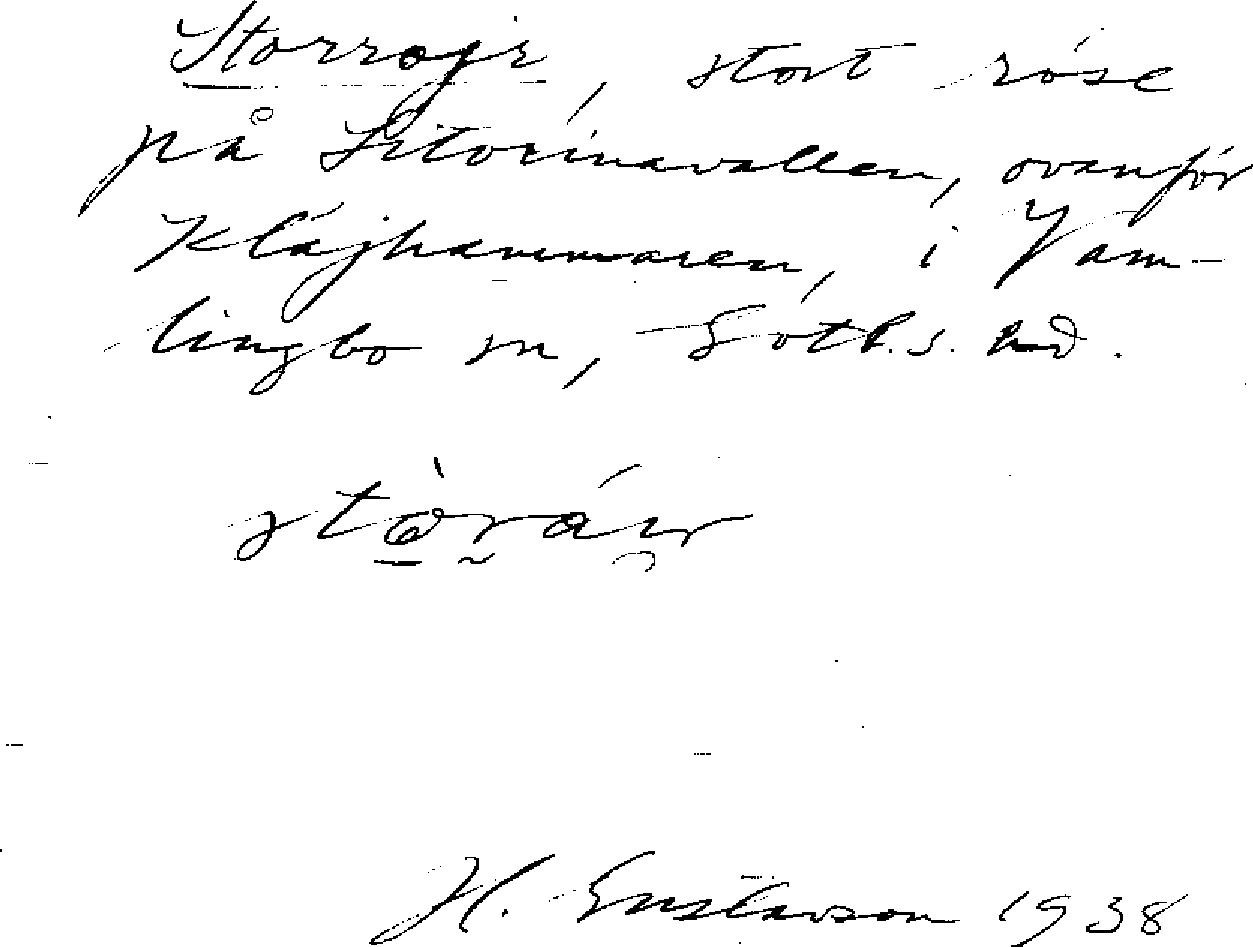 Storrojr, stort röse
på Litorinavallen, ovanför
Klájhammaren, i Vam-
lingbo sn, Gotl.s. hd.
H. Gustavson 1938